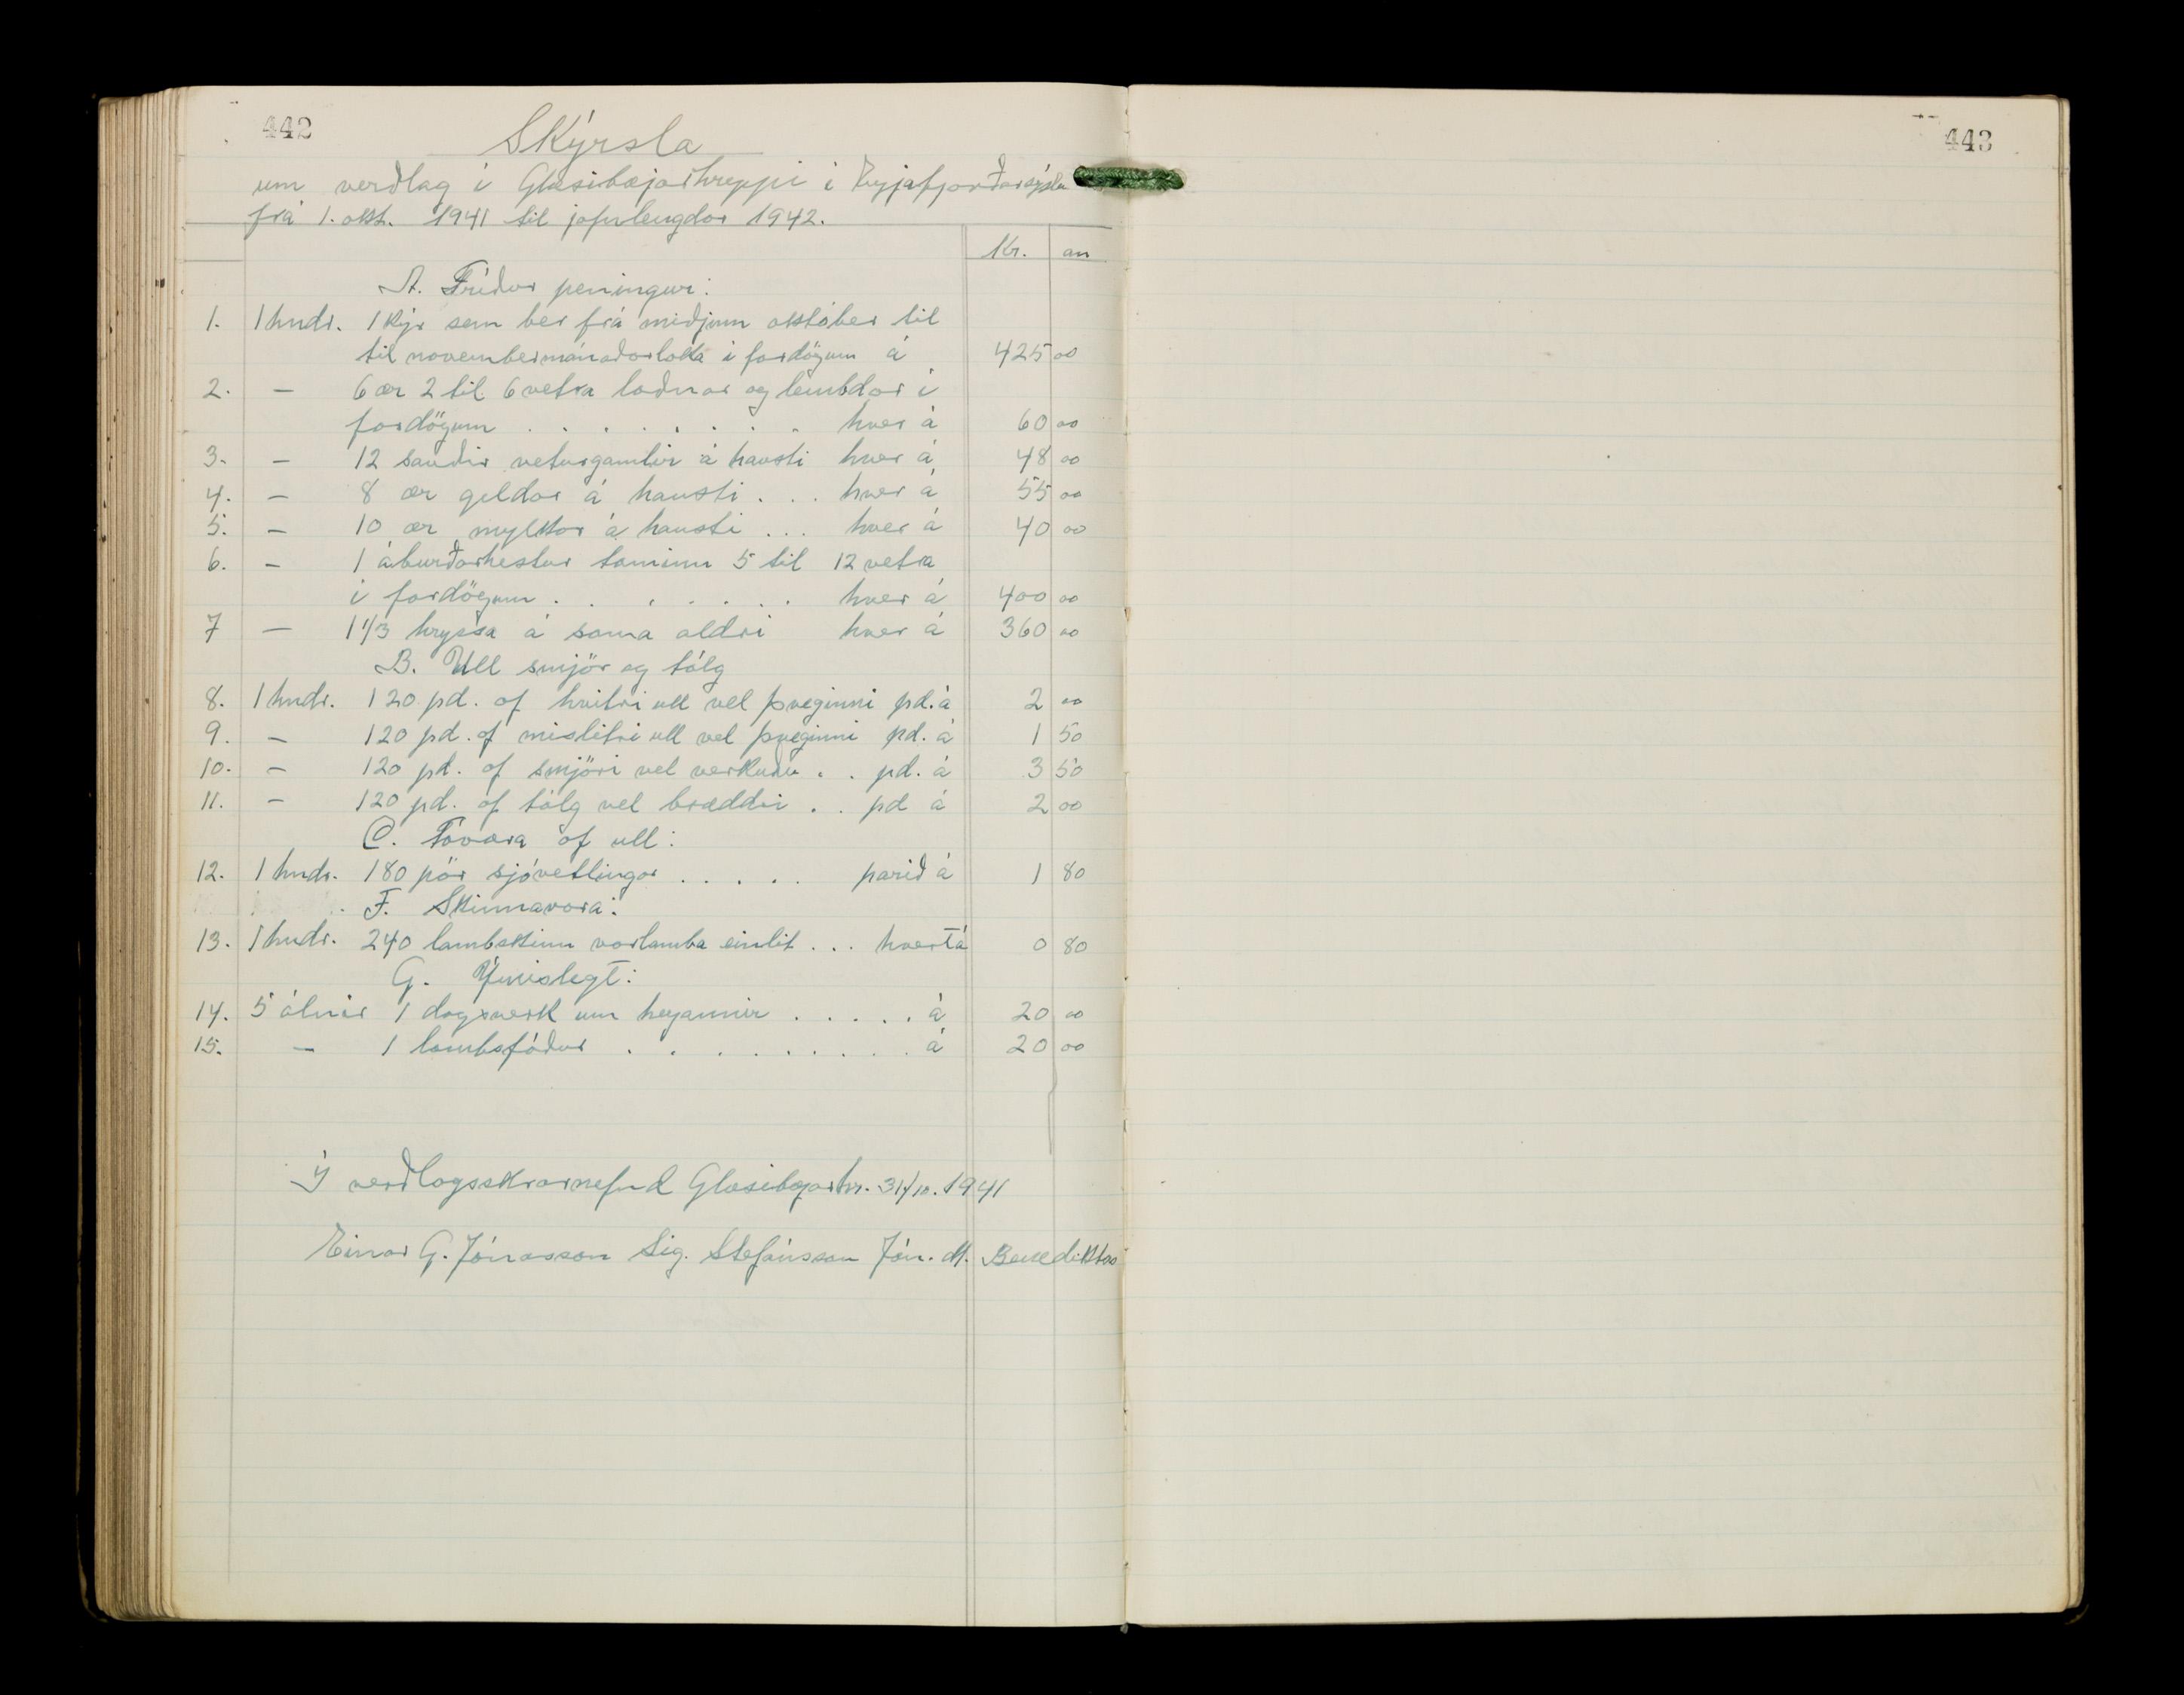 442
Skýrsla
um verðlag í Glæsibæjarhreppi í Eyjafjarðarsýslu
frá 1. okt. 1941 til jafnlengdar 1942.
Kr. au
A. Fríður peningur:
1. 1 hndr. 1 kýr sem ber frá miðjum október til
til novembermánaðarloka í fardögum á 425 00
2. — 6 ær 2 til 6 vetra loðnar og lembdar í
fardögum . . . . . . . . hver á 60 00
3. — 12 sauðir veturgamlir á hausti hver á 48 00
4. — 8 ær geldar á hausti . . . hver á 55 00
5. — 10 ær mylkar á hausti . . . hver á 40 00
6. — 1 áburðarhestur taminn 5 til 12 vetra
í fardögum . . . . . . . hver á 400 00
7 — 1 1/3 hryssa á sama aldri hver á 360 00
B. Ull smjör og tólg
8. 1 hndr. 120 pd. af hvítri ull vel þveginni pd. á 2 00
9. — 120 pd. af mislitri ull vel þveginni pd. á 1 50
10. — 120 pd. af smjöri vel verkuðu . . pd. á 3 50
11. — 120 pd. af tólg vel bræddri . . pd á 2 00
C. Tóvara af ull:
12. 1 hndr. 180 pör sjóvetlingar . . . . . parið á 1 80
F. Skinnavara:
13. 1 hndr. 240 lambskinn vorlamba einlit . . . hvert á 0 80
G. Ýmislegt:
14. 5 álnir 1 dagsverk um heyannir . . . . . á 20 00
15. — 1 lambsfóður . . . . . . . . . . á 20 00
Í verðlagsskrárnefnd Glæsibæjarhr. 31/10. 1941
Einar G. Jónasson Sig. Stefánsson Jón. M. Benediktss
443